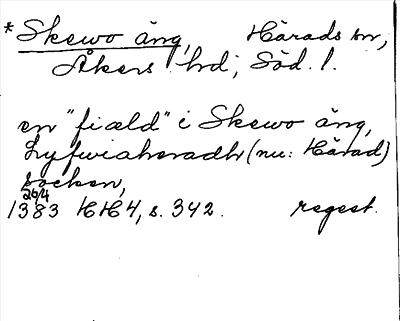 * Skewo äng, Härads sn,
Åkers hd, Söd. l.
en "fiæld" i Skewo äng,
Lyfwiaheradh (nu: Härad)
socken,
26/4
1383 HH4, s. 342. regest.